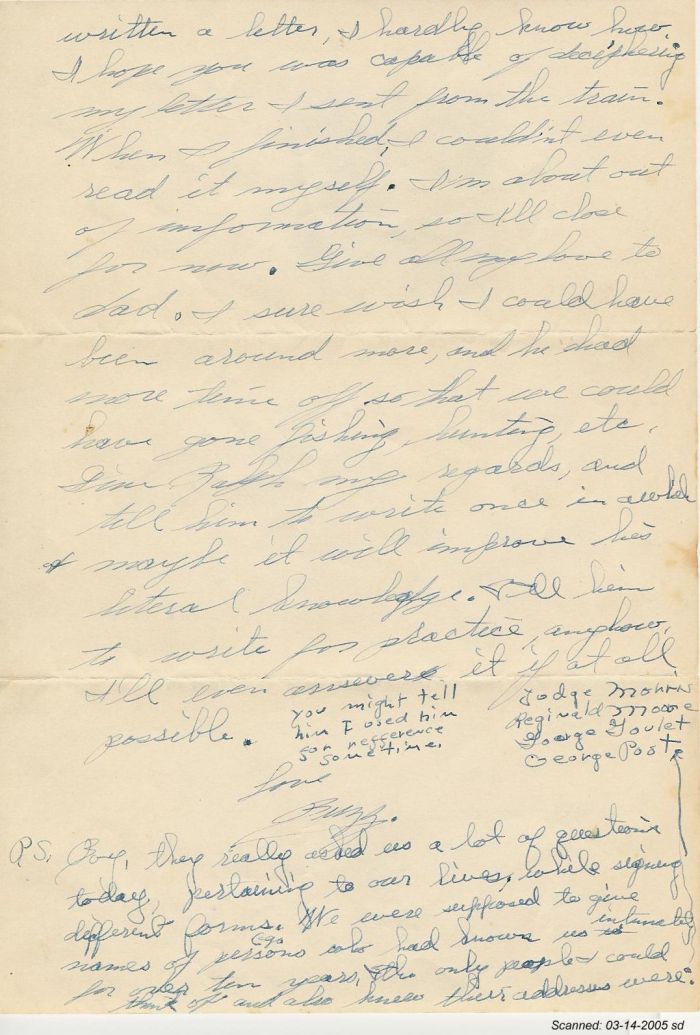 written a letter, I hardly know how.
I hope you was capable of deciphering
my letter I sent from the train.
When I finished, I couldn't even
read it myself. I'm about out
of information, so I'll close
for now. Give all my love to
dad. I sure wish I could have
been around more, and he had
more time off so that we could
have gone fishing, hunting, etc.
Give Ralph my regards, and
tell him to write once in awhile
& maybe it will improve his
literal knowledge. Tell him
to write for practice, anyhow,
I'll even answere it if at all
possible.
you might tell
him I used him
for refference
sometime.
Judge Morris
Reginald Moore
George Goulet
George Post
Love
Buzz.
P.S. Boy, they really asked us a lot of questions
today, pertaining to our lives, while signing
different forms. We were supposed to give
names of persons who had known us intimately
for over ten years, the only people I could
think of and also knew their addresses were:
Scanned: 03-14-2005 sd